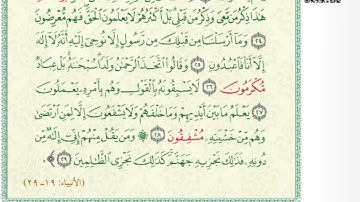 هَٰذَا ذِكْرُ مَن مَّعِىَ وَذِكْرُ مَن قَبْلِى بَلْ أَكْثَرُهُمْ لَا يَعْلَمُونَ الْحَقَّ فَهُم مُّعْرِضُونَ
٢٤ وَمَآ أَرْسَلْنَا مِن قَبْلِكَ مِن رَّسُولٍ إِلَّا نُوحِىٓ إِلَيْهِ أَنَّهُۥ لَآ إِلَٰهَ
إِلَّآ أَنَا۠ فَاعْبُدُونِ ٢٥ وَقَالُوا۟ اتَّخَذَ الرَّحْمَٰنُ وَلَدًا سُبْحَٰنَهُۥ بَلْ عِبَادٌ
مُّكْرَمُونَ ٢٦ لَا يَسْبِقُونَهُۥ بِالْقَوْلِ وَهُم بِأَمْرِهِۦ يَعْمَلُونَ
٢٧ يَعْلَمُ مَا بَيْنَ أَيْدِيهِمْ وَمَا خَلْفَهُمْ وَلَا يَشْفَعُونَ إِلَّا لِمَنِ ارْتَضَىٰ
وَهُم مِّنْ خَشْيَتِهِۦ مُشْفِقُونَ ٢٨ ۞ وَمَن يَقُلْ مِنْهُمْ إِنِّىٓ إِلَٰهٌ مِّن
دُونِهِۦ فَذَٰلِكَ نَجْزِيهِ جَهَنَّمَ كَذَٰلِكَ نَجْزِى الظَّٰلِمِينَ ٢٩ ﴾
(الأنبياء: ١٩-٢٩)